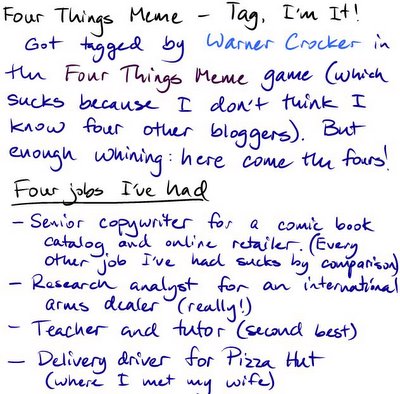 Four Things Meme – Tag, I'm It!
Got tagged by Warner Crocker in
the Four Things Meme game (which
sucks because I don't think I
know four other bloggers). But
enough whining: here come the fours!
Four jobs I've had
– Senior copywriter for a comic book
catalog and online retailer. (Every
other job I've had sucks by comparison)
– Research analyst for an international
arms dealer (really!)
– Teacher and tutor (second best)
– Delivery driver for Pizza Hut
(where I met my wife)